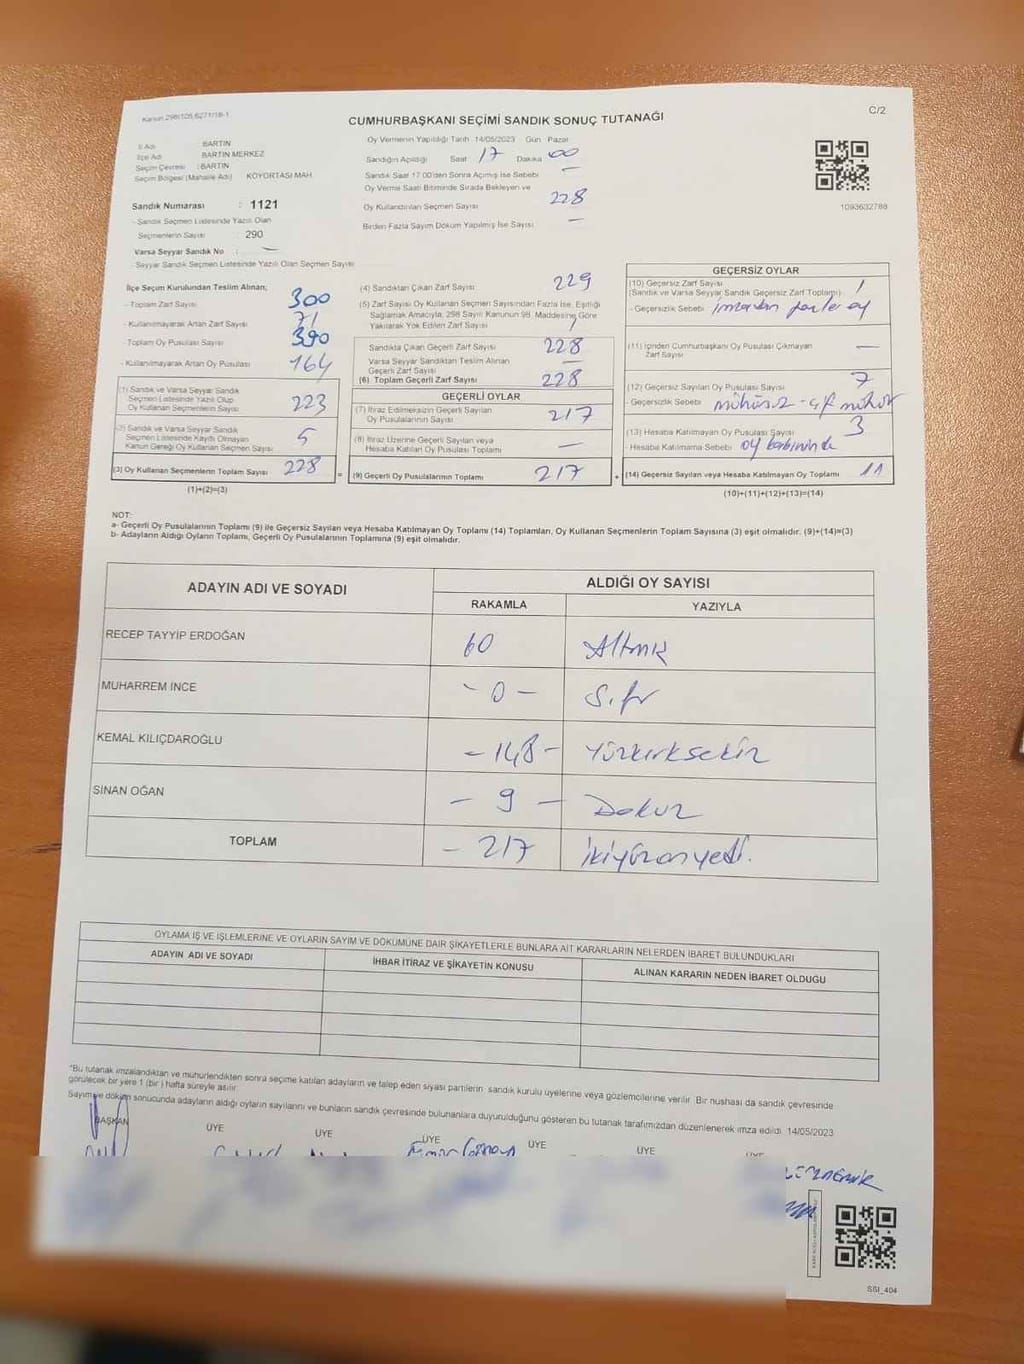 Kanun 298/105,6271/18-1
C/2
CUMHURBAŞKANI SEÇİMİ SANDIK SONUÇ TUTANAĞI
İl Adı : BARTIN
İlçe Adı : BARTIN MERKEZ
Seçim Çevresi : BARTIN
Seçim Bölgesi (Mahalle Adı) : KÖYORTASI MAH.
Sandık Numarası : 1121
- Sandık Seçmen Listesinde Yazılı Olan
Seçmenlerin Sayısı : 290
Varsa Seyyar Sandık No : —
- Seyyar Sandık Seçmen Listesinde Yazılı Olan Seçmen Sayısı
Oy Vermenin Yapıldığı Tarih 14/05/2023 Gün Pazar
Sandığın Açıldığı Saat 17 Dakika 00
Sandık Saat 17:00'den Sonra Açılmış İse Sebebi —
Oy Verme Saati Bitiminde Sırada Bekleyen ve
Oy Kullandırılan Seçmen Sayısı 228
Birden Fazla Sayım Döküm Yapılmış İse Sayısı —
1093632788
İlçe Seçim Kurulundan Teslim Alınan;
- Toplam Zarf Sayısı 300
- Kullanılmayarak Artan Zarf Sayısı 71
- Toplam Oy Pusulası Sayısı 390
- Kullanılmayarak Artan Oy Pusulası 164
(1) Sandık ve Varsa Seyyar Sandık
Seçmen Listesinde Yazılı Olup
Oy Kullanan Seçmenlerin Sayısı 223
(2) Sandık ve Varsa Seyyar Sandık
Seçmen Listesinde Kaydı Olmayan
Kanun Gereği Oy Kullanan Seçmen Sayısı 5
(3) Oy Kullanan Seçmenlerin Toplam Sayısı 228
(1)+(2)=(3)
(4) Sandıktan Çıkan Zarf Sayısı 229
(5) Zarf Sayısı Oy Kullanan Seçmen Sayısından Fazla İse, Eşitliği
Sağlamak Amacıyla, 298 Sayılı Kanunun 98. Maddesine Göre
Yakılarak Yok Edilen Zarf Sayısı 1
Sandıkta Çıkan Geçerli Zarf Sayısı 228
Varsa Seyyar Sandıktan Teslim Alınan
Geçerli Zarf Sayısı
(6) Toplam Geçerli Zarf Sayısı 228
GEÇERLİ OYLAR
(7) İtiraz Edilmeksizin Geçerli Sayılan
Oy Pusulasının Sayısı 217
(8) İtiraz Üzerine Geçerli Sayılan veya
Hesaba Katılan Oy Pusulası Toplamı —
= (9) Geçerli Oy Pusulalarının Toplamı 217
GEÇERSİZ OYLAR
(10) Geçersiz Zarf Sayısı 1
(Sandık ve Varsa Seyyar Sandık Geçersiz Zarf Toplamı)
- Geçersizlik Sebebi : imzadan fazla oy
(11) İçinden Cumhurbaşkanı Oy Pusulası Çıkmayan —
Zarf Sayısı
(12) Geçersiz Sayılan Oy Pusulası Sayısı 7
- Geçersizlik Sebebi mühürsüz - çift mühür
(13) Hesaba Katılmayan Oy Pusulası Sayısı 3
- Hesaba Katılmama Sebebi oy kabininde
+ (14) Geçersiz Sayılan veya Hesaba Katılmayan Oy Toplamı 11
(10)+(11)+(12)+(13)=(14)
NOT:
a- Geçerli Oy Pusulalarının Toplamı (9) ile Geçersiz Sayılan veya Hesaba Katılmayan Oy Toplamı (14) Toplamları, Oy Kullanan Seçmenlerin Toplam Sayısına (3) eşit olmalıdır. (9)+(14)=(3)
b- Adayların Aldığı Oyların Toplamı, Geçerli Oy Pusulalarının Toplamına (9) eşit olmalıdır.
ADAYIN ADI VE SOYADI
ALDIĞI OY SAYISI
RAKAMLA YAZIYLA
RECEP TAYYİP ERDOĞAN 60 Altmış
MUHARREM İNCE - 0 - Sıfır
KEMAL KILIÇDAROĞLU - 148 - Yüzkırksekiz
SİNAN OĞAN - 9 - Dokuz
TOPLAM - 217 ikiyüzonyedi.
OYLAMA İŞ VE İŞLEMLERİNE VE OYLARIN SAYIM VE DÖKÜMÜNE DAİR ŞİKAYETLERLE BUNLARA AİT KARARLARIN NELERDEN İBARET BULUNDUKLARI
ADAYIN ADI VE SOYADI İHBAR İTİRAZ VE ŞİKAYETİN KONUSU ALINAN KARARIN NEDEN İBARET OLDUĞU
*Bu tutanak imzalandıktan ve mühürlendikten sonra seçime katılan adayların ve talep eden siyasi partilerin sandık kurulu üyelerine veya gözlemcilerine verilir. Bir nüshası da sandık çevresinde
görülecek bir yere 1 (bir) hafta süreyle asılır.
Sayım ve döküm sonucunda adayların aldığı oyların sayılarını ve bunların sandık çevresinde bulunanlara duyurulduğunu gösteren bu tutanak tarafımızdan düzenlenerek imza edildi. 14/05/2023
BAŞKAN ÜYE ÜYE ÜYE ÜYE ÜYE ÜYE
SSI_404